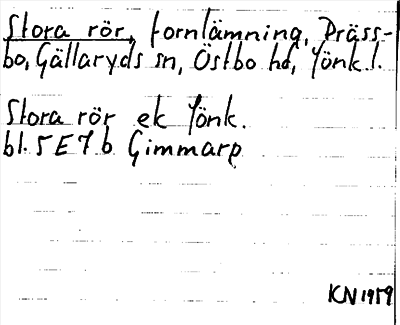 Stora rör, fornlämning, Präss-
bo, Gällaryds sn, Östbo hd, Jönk.l.
Stora rör ek Jönk.
bl. 5E7b Gimmarp
KN 1959